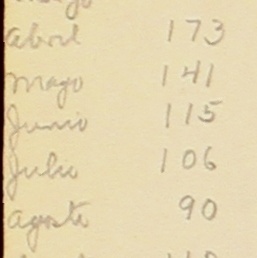 abril 173
mayo 141
Junio 115
Julio 106
agosto 90